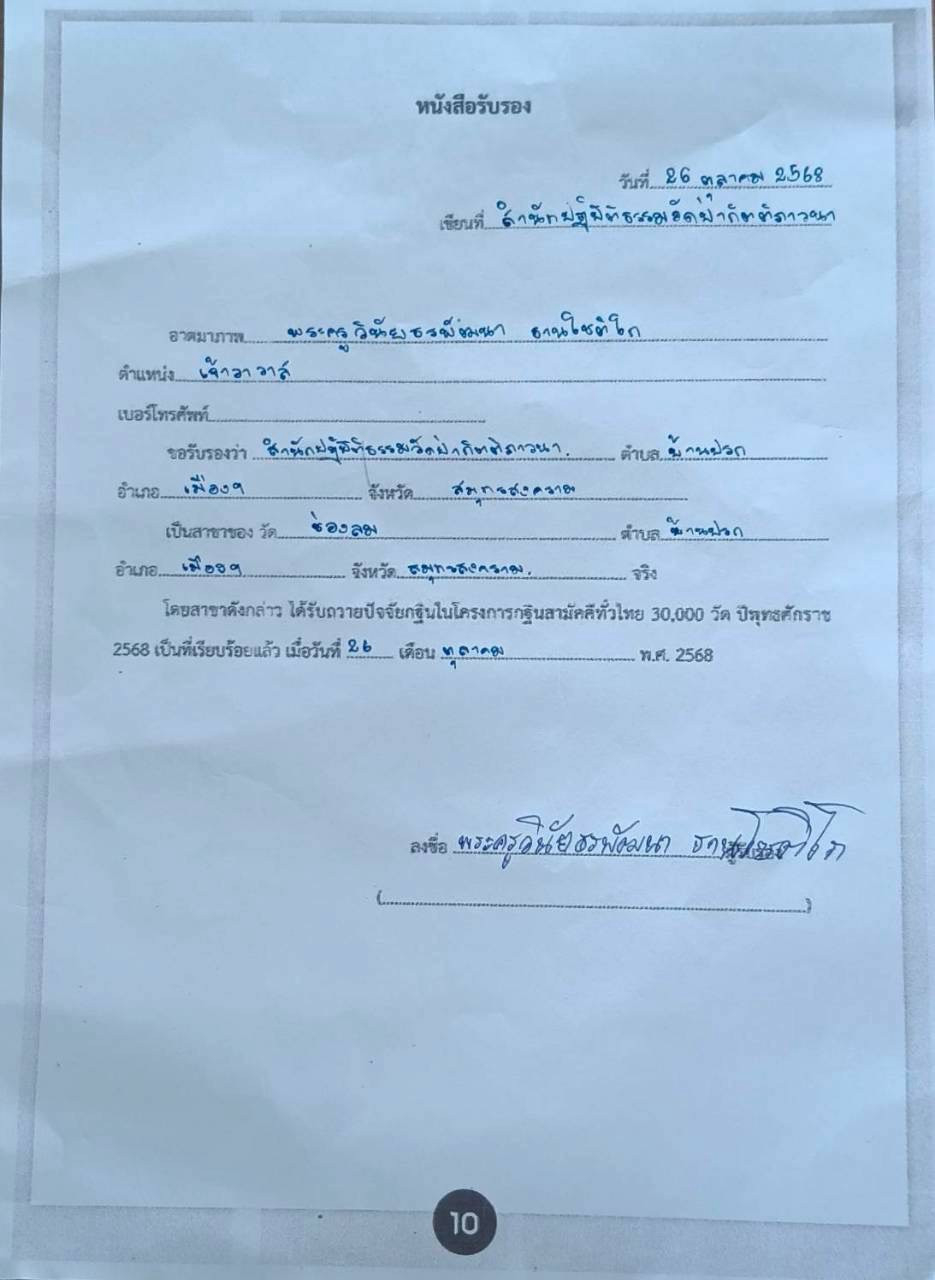 หนังสือรับรอง
วันที่ 26 ตุลาคม 2568
เขียนที่ สำนักปฏิบัติธรรมวัดป่ากิตติภาวนา
อาตมาภาพ พระครูวินัยธรพัฒนา ฐานโชติโก
ตำแหน่ง เจ้าอาวาส
เบอร์โทรศัพท์
ขอรับรองว่า สำนักปฏิบัติธรรมวัดป่ากิตติภาวนา ตำบล บ้านปรก
อำเภอ เมืองฯ จังหวัด สมุทรสงคราม
เป็นสาขาของ วัด ช่องลม ตำบล บ้านปรก
อำเภอ เมืองฯ จังหวัด สมุทรสงคราม จริง
โดยสาขาดังกล่าว ได้รับถวายปัจจัยกฐินในโครงการกฐินสามัคคีทั่วไทย 30,000 วัด ปีพุทธศักราช
2568 เป็นที่เรียบร้อยแล้ว เมื่อวันที่ 26 เดือน ตุลาคม พ.ศ. 2568
ลงชื่อ พระครูวินัยธรพัฒนา
(
)
10